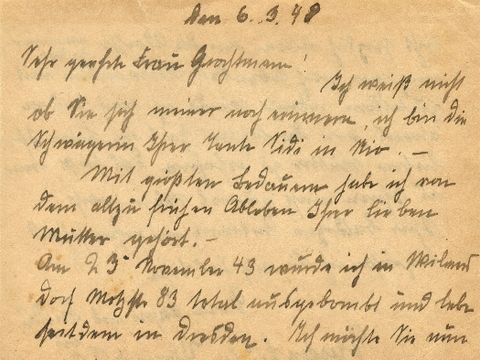 Den 6. 3. 48
Sehr geehrte Frau Grachtmann!
Ich weiß nicht
ob Sie sich meiner noch erinnern, ich bin die
Schwägerin Ihrer Tante Sidi in Rio. —
Mit größten Bedauern habe ich von
dem allzu frühen Ableben Ihrer lieben
Mutter gehört. —
Am 23 November 43 wurde ich in Wilmers
dorf Motzstr 83 total ausgebombt und lebe
seitdem in Dresden. Ich möchte Sie nun